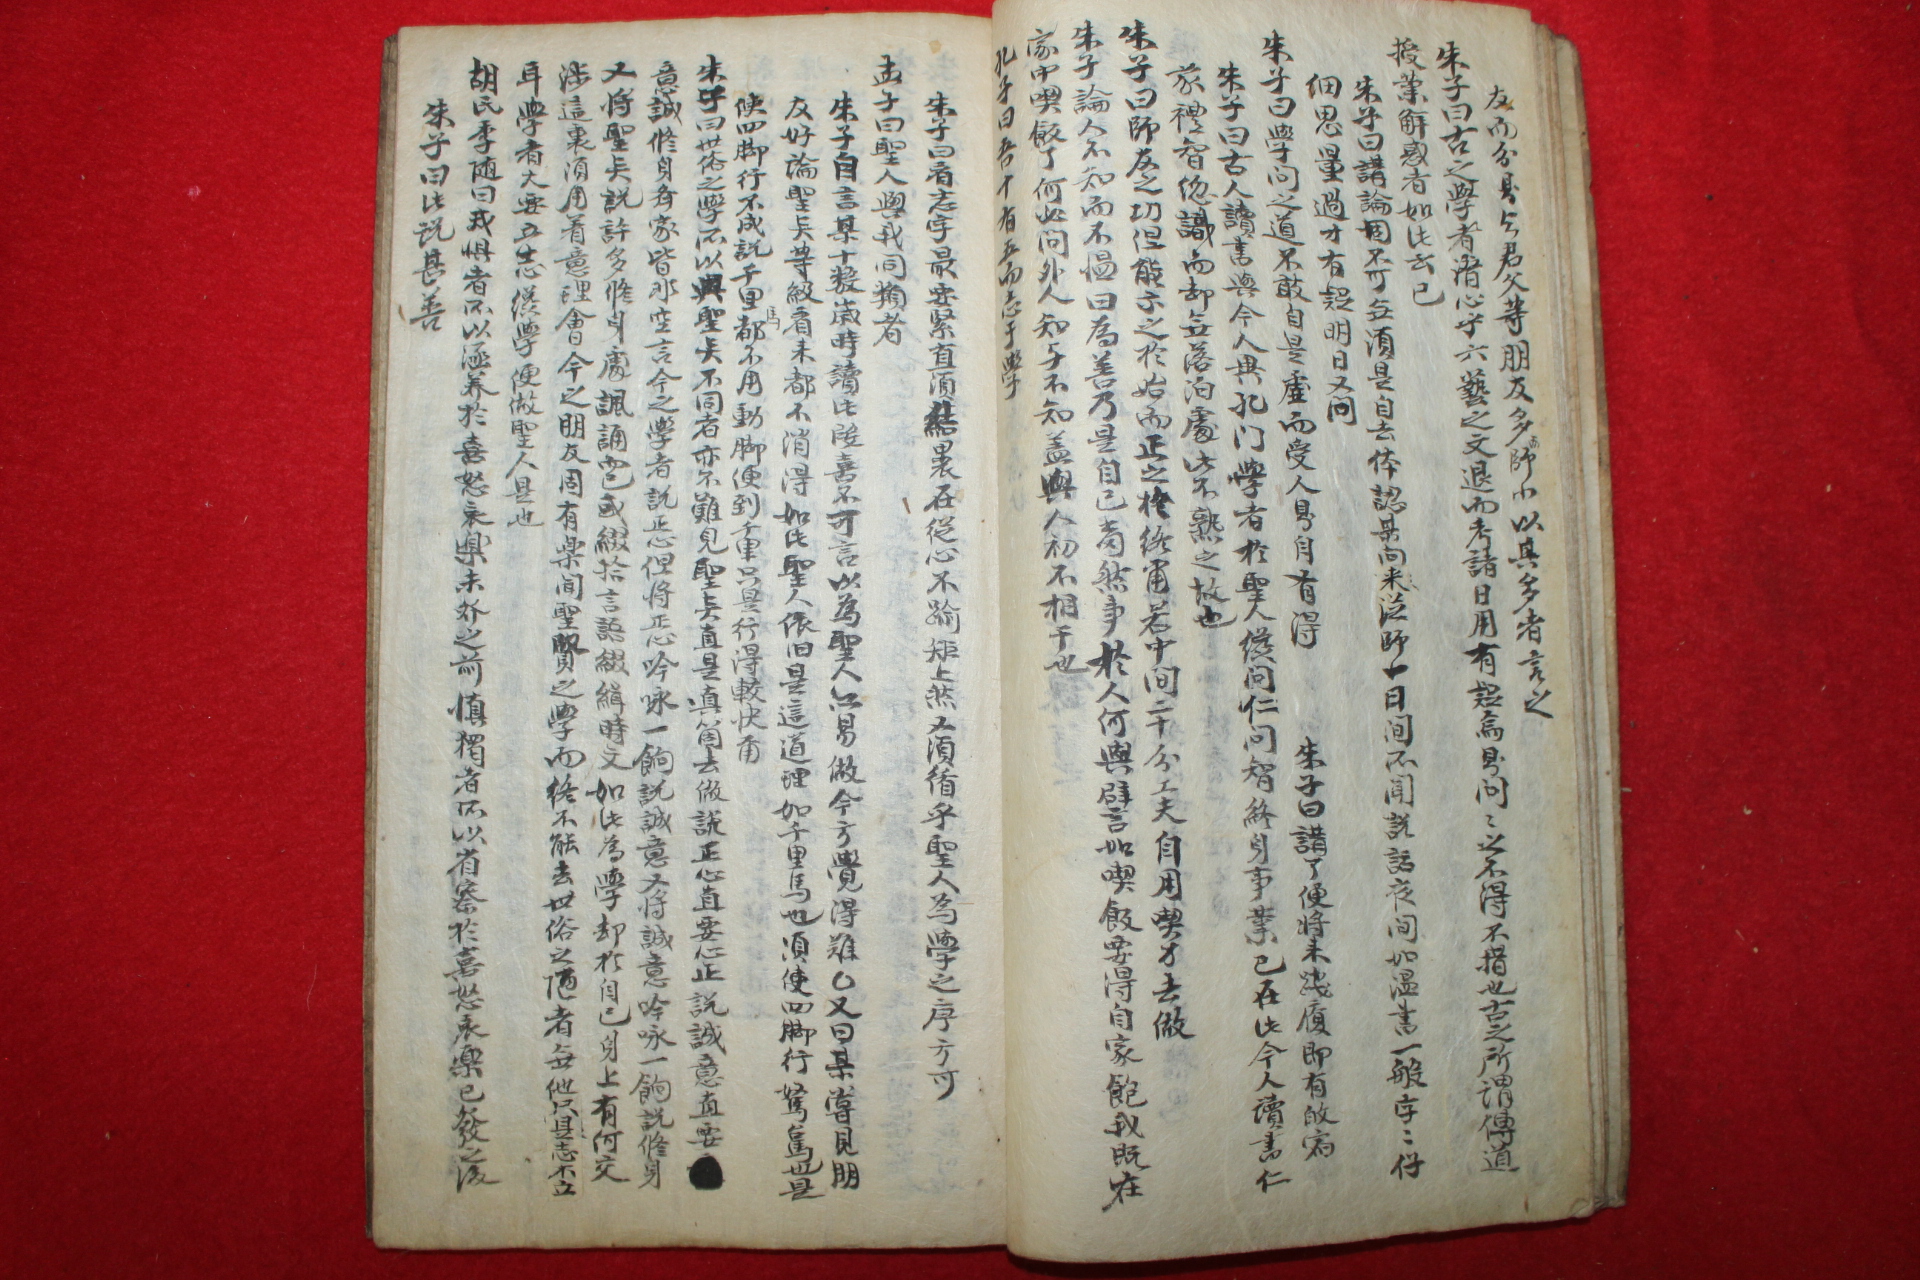 友而分是与君父等朋友多而師少以其多者言之
朱子曰古之學者潜心乎六藝之文退而考諸日用有疑焉則問〻之不得不措也古之所謂傳道
授業解惑者如此而已
朱子曰講論固不可無須是自去体認某向來從師一日间不聞説話夜间如温書一般字〻仔
细思量過才有疑明日又问
朱子曰學问之道不敢自是虛而受人則自有得
朱子曰講了便將來踐履即有攸宿
朱子曰古人讀書與今人異孔门學者於聖人僅问仁问智終身事業已在此今人讀書仁
義禮智總識而却無落泊處此不熟之故也
朱子曰師友之功但能示之於始而正之於終甭若中间二十分工夫自用喫力去做
朱子論人不知而不愠曰為善乃是自己当然事於人何與譬言如喫飯要得自家飽我既在
家中喫飯了何必问外人知与不知盖與人初不相干也
孔子曰吾十有五而志于學
朱子曰看志字最要緊直須結裹在從心不踰矩上然又須循乎聖人為學之序方可
孟子曰聖人與我同類者
朱子自言某十數歲時讀此段喜不可言以為聖人亦易做今方覺得難也又曰某嘗見朋
友好論聖矣等級看来都不消得如此聖人依旧是這道理如千里馬也須使四脚行駑駘也是
使四脚行不成説千里馬都不用動脚便到千里只是行得較快甭
朱子曰世俗之學不以與聖矣不同者亦不難見聖矣直是真箇去做説正心直要心正説誠意直要
意誠修身齊家皆非空言今之學者説正心但將正心吟咏一餉説誠意又將誠意吟咏一餉説修身
又將聖矣説許多修身處諷誦而已或綴拾言語綴緝時文如此為學却於自己身上有何交
涉這裏須用着意理會今之朋友固有樂聞聖賢之學而終不能去世俗之陋者無他只是志不立
耳學者大要立志纔學便做聖人是也
胡氏季随曰戒惧者所以涵养於喜怒哀樂未发之前慎獨者所以省察於喜怒哀樂已發之後
朱子曰此説甚善